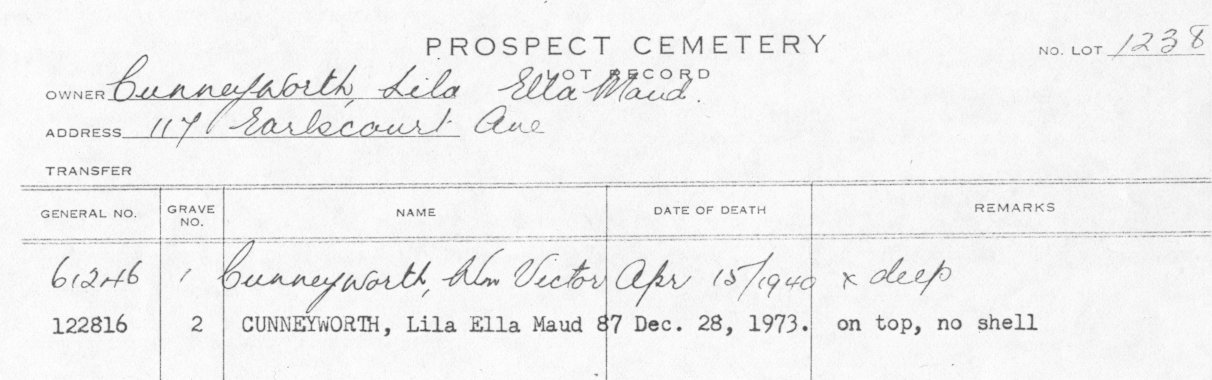 PROSPECT CEMETERY
NO. LOT 1238
LOT RECORD
OWNER Cunneyworth, Lila Ella Maud.
ADDRESS 117 Earlscourt Ave
TRANSFER
GENERAL NO. GRAVE NO. NAME DATE OF DEATH REMARKS
61246 1 Cunneyworth, Wm Victor Apr 15/1940 x deep
122816 2 CUNNEYWORTH, Lila Ella Maud 87 Dec. 28, 1973. on top, no shell